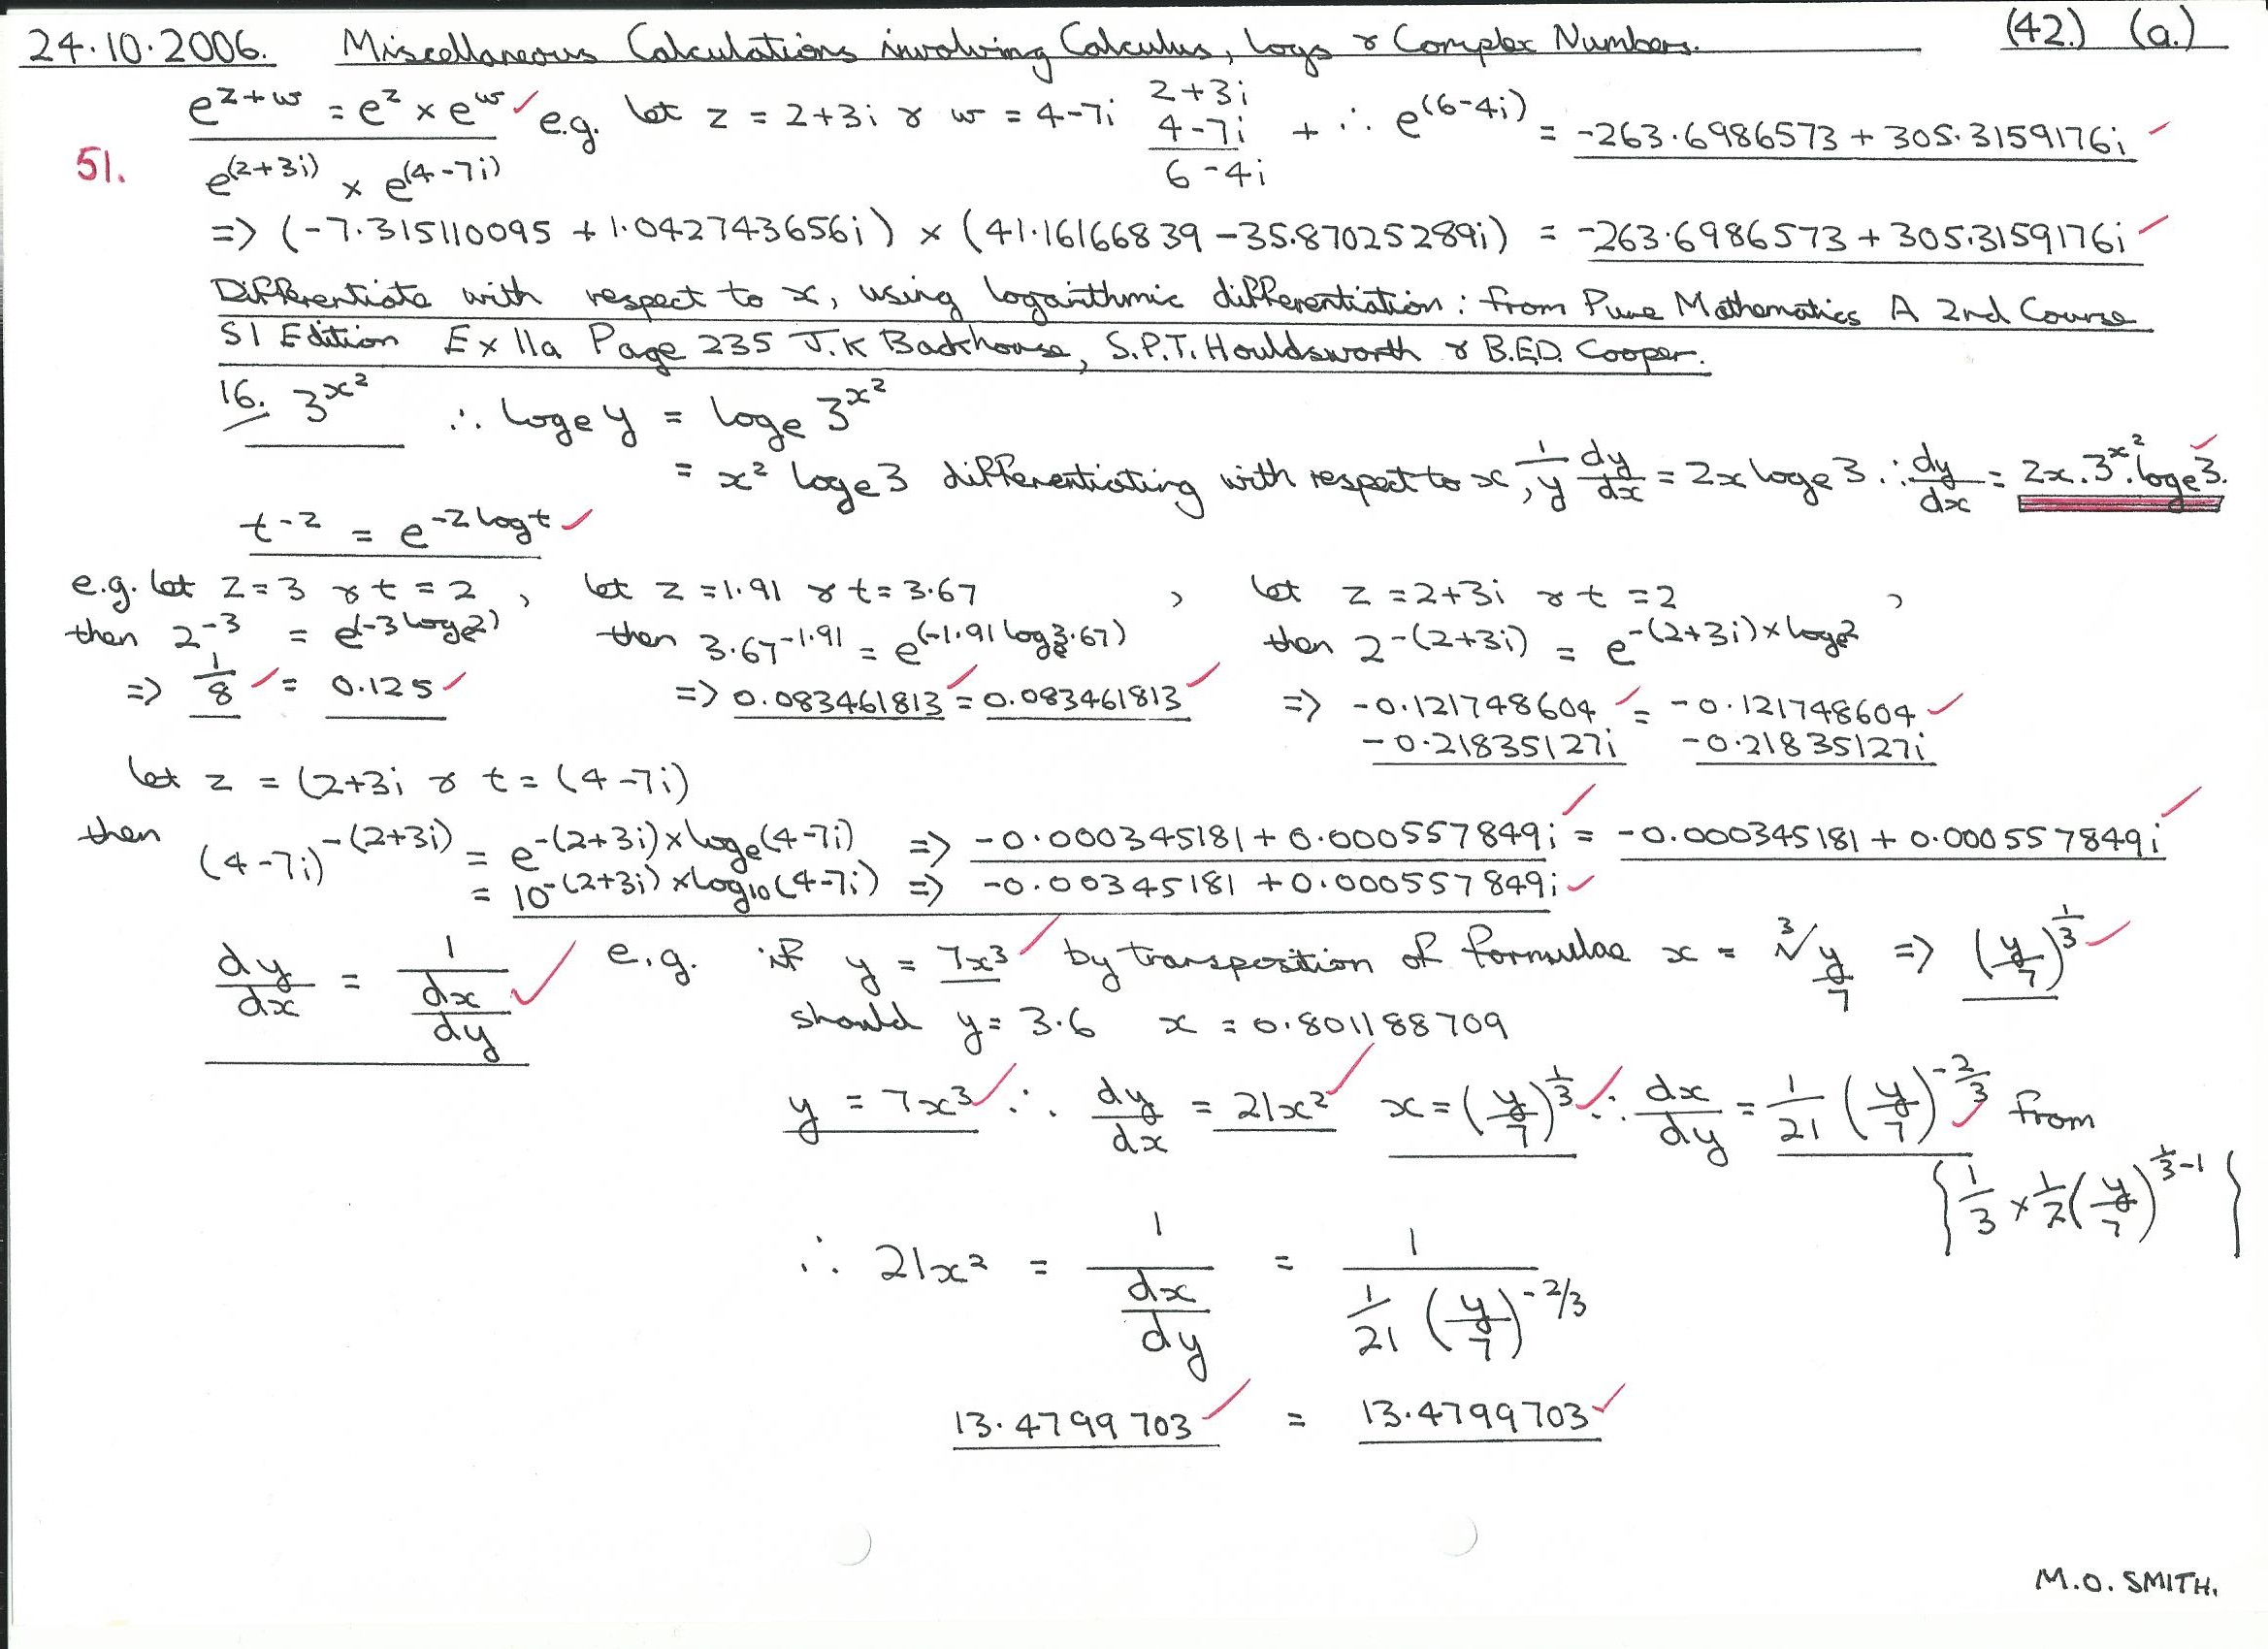 24.10.2006. Miscellaneous Calculations involving Calculus, Logs & Complex Numbers. (42.) (a.)
e^(z+w) = e^z × e^w ✓ e.g. let z = 2+3i & w = 4-7i 2+3i
4-7i + ∴ e^(6-4i) = -263.6986573 + 305.3159176i ✓
6-4i
51. e^(2+3i) × e^(4-7i)
=> (-7.315110095 + 1.042743656i) × (41.16166839 - 35.87025289i) = -263.6986573 + 305.3159176i ✓
Differentiate with respect to x, using logarithmic differentiation: from Pure Mathematics A 2nd Course
SI Edition Ex 11a Page 235 J.K Backhouse, S.P.T. Houldsworth & B.E.D. Cooper.
16. 3^x² ∴ loge y = loge 3^x²
= x² loge 3 differentiating with respect to x, 1/y dy/dx = 2x loge 3 ∴ dy/dx = 2x.3^x².loge 3. ✓
t^-z = e^-z log t ✓
e.g. let z=3 & t=2, let z=1.91 & t=3.67, let z=2+3i & t=2,
then 2^-3 = e^(-3 loge 2) then 3.67^-1.91 = e^(-1.91 loge 3.67) then 2^-(2+3i) = e^-(2+3i)×loge 2
=> 1/8 ✓ = 0.125 ✓ => 0.083461813 ✓ = 0.083461813 ✓ => -0.121748604 ✓ = -0.121748604 ✓
-0.21835127i -0.21835127i
let z = (2+3i & t = (4-7i)
then (4-7i)^-(2+3i) = e^-(2+3i)×loge(4-7i) => -0.000345181 + 0.000557849i ✓ = -0.000345181 + 0.000557849i ✓
= 10^-(2+3i)×log10(4-7i) => -0.00345181 + 0.000557849i ✓
dy/dx = 1/(dx/dy) ✓ e.g. if y = 7x³ ✓ by transposition of formulae x = ³√(y/7) => (y/7)^1/3 ✓
should y = 3.6 x = 0.801188709
y = 7x³ ✓ ∴ dy/dx = 21x² ✓ x = (y/7)^1/3 ✓ ∴ dx/dy = 1/21 (y/7)^-2/3 ✓ from
{1/3 × 1/7 (y/7)^1/3-1}
∴ 21x² = 1/(dx/dy) = 1/(1/21 (y/7)^-2/3)
13.4799703 ✓ = 13.4799703 ✓
M.O. SMITH.